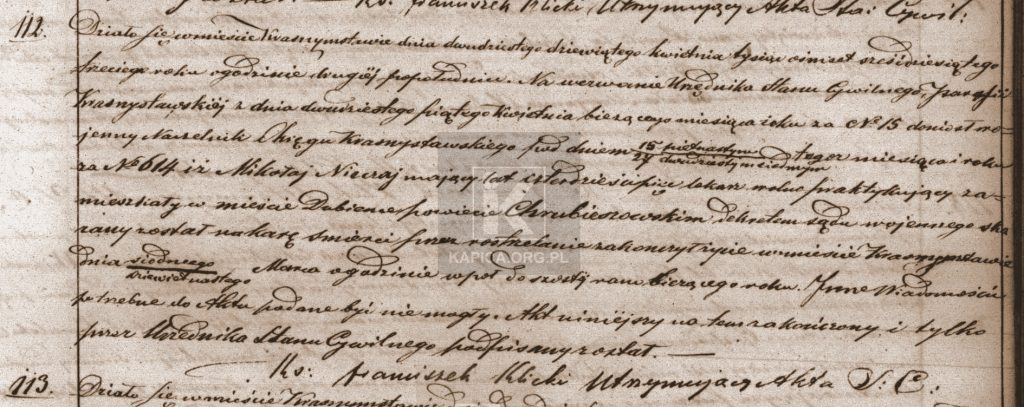 Ks: Franciszek Klicki Utrzymujący Akta Sta: Cywil:
112. Działo się w mieście Krasnymstawie dnia dwudziestego dziewiątego kwietnia tysiąc ośmset sześćdziesiątego
trzeciego roku o godzinie drugiéj popołudniu. Na wezwanie Urzędnika Stanu Cywilnego, parafii
Krasnystawskiéj z dnia dwudziestego piątego Kwietnia bieżącego miesiąca i roku za No 15 doniósł wo-
jenny Naczelnik Okręgu Krasnystawskiego pod dniem 15 piętnastym / 27 dwudziestym siódmym tegoż miesiąca i roku
za No 614 iż Mikołaj Nieczaj mający lat czterdzieści pięć lekarz wolno praktykujący za-
mieszkały w mieście Dubience powiecie Chrubieszowskim dekretem sądu wojennego ska
zany został na karę śmierci przez rostrzelanie zakończył życie w mieście Krasnymstawie
dnia siódmego / dziewiętnastego Marca o godzinie wpół do szóstéj rano bieżącego roku. Inne Wiadomości
potrzebne do Aktu podane być nie mogły. Akt niniejszy na tem zakończony i tylko
przez Urzędnika Stanu Cywilnego podpisany został. —
Ks: Franciszek Klicki Utrzymujący Akta S: C:
113. Działo się w mieście Krasnymstawie
K
KAPICA.ORG.PL